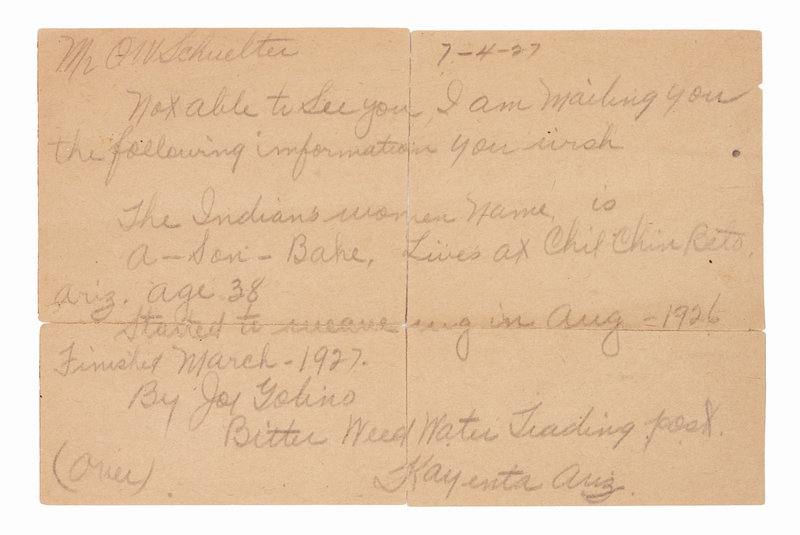 Mr O W Schuelter 7-4-27
Not able to See you, I am Mailing you
the following information you wish
The Indians women Name, is
A-Son-Bahe, Lives at Chil Chin Beto,
Ariz. age 38
Started to weave rug in Aug - 1926
Finished March - 1927.
By Joe
Bitter Weed Water Trading post.
(Over) Kayenta Ariz.